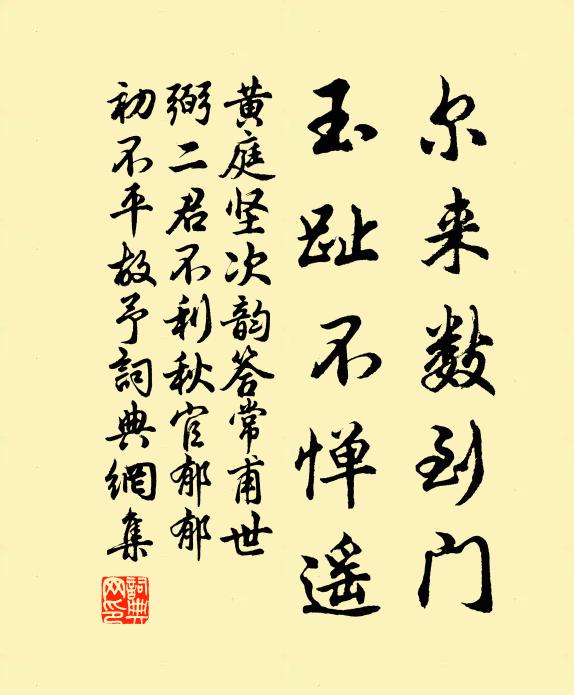 尔来数到门
玉趾不惮遥
黄庭坚次韵答常甫世
弼二君不利秋官郁郁
初不平故予詞典網集
詞典网印